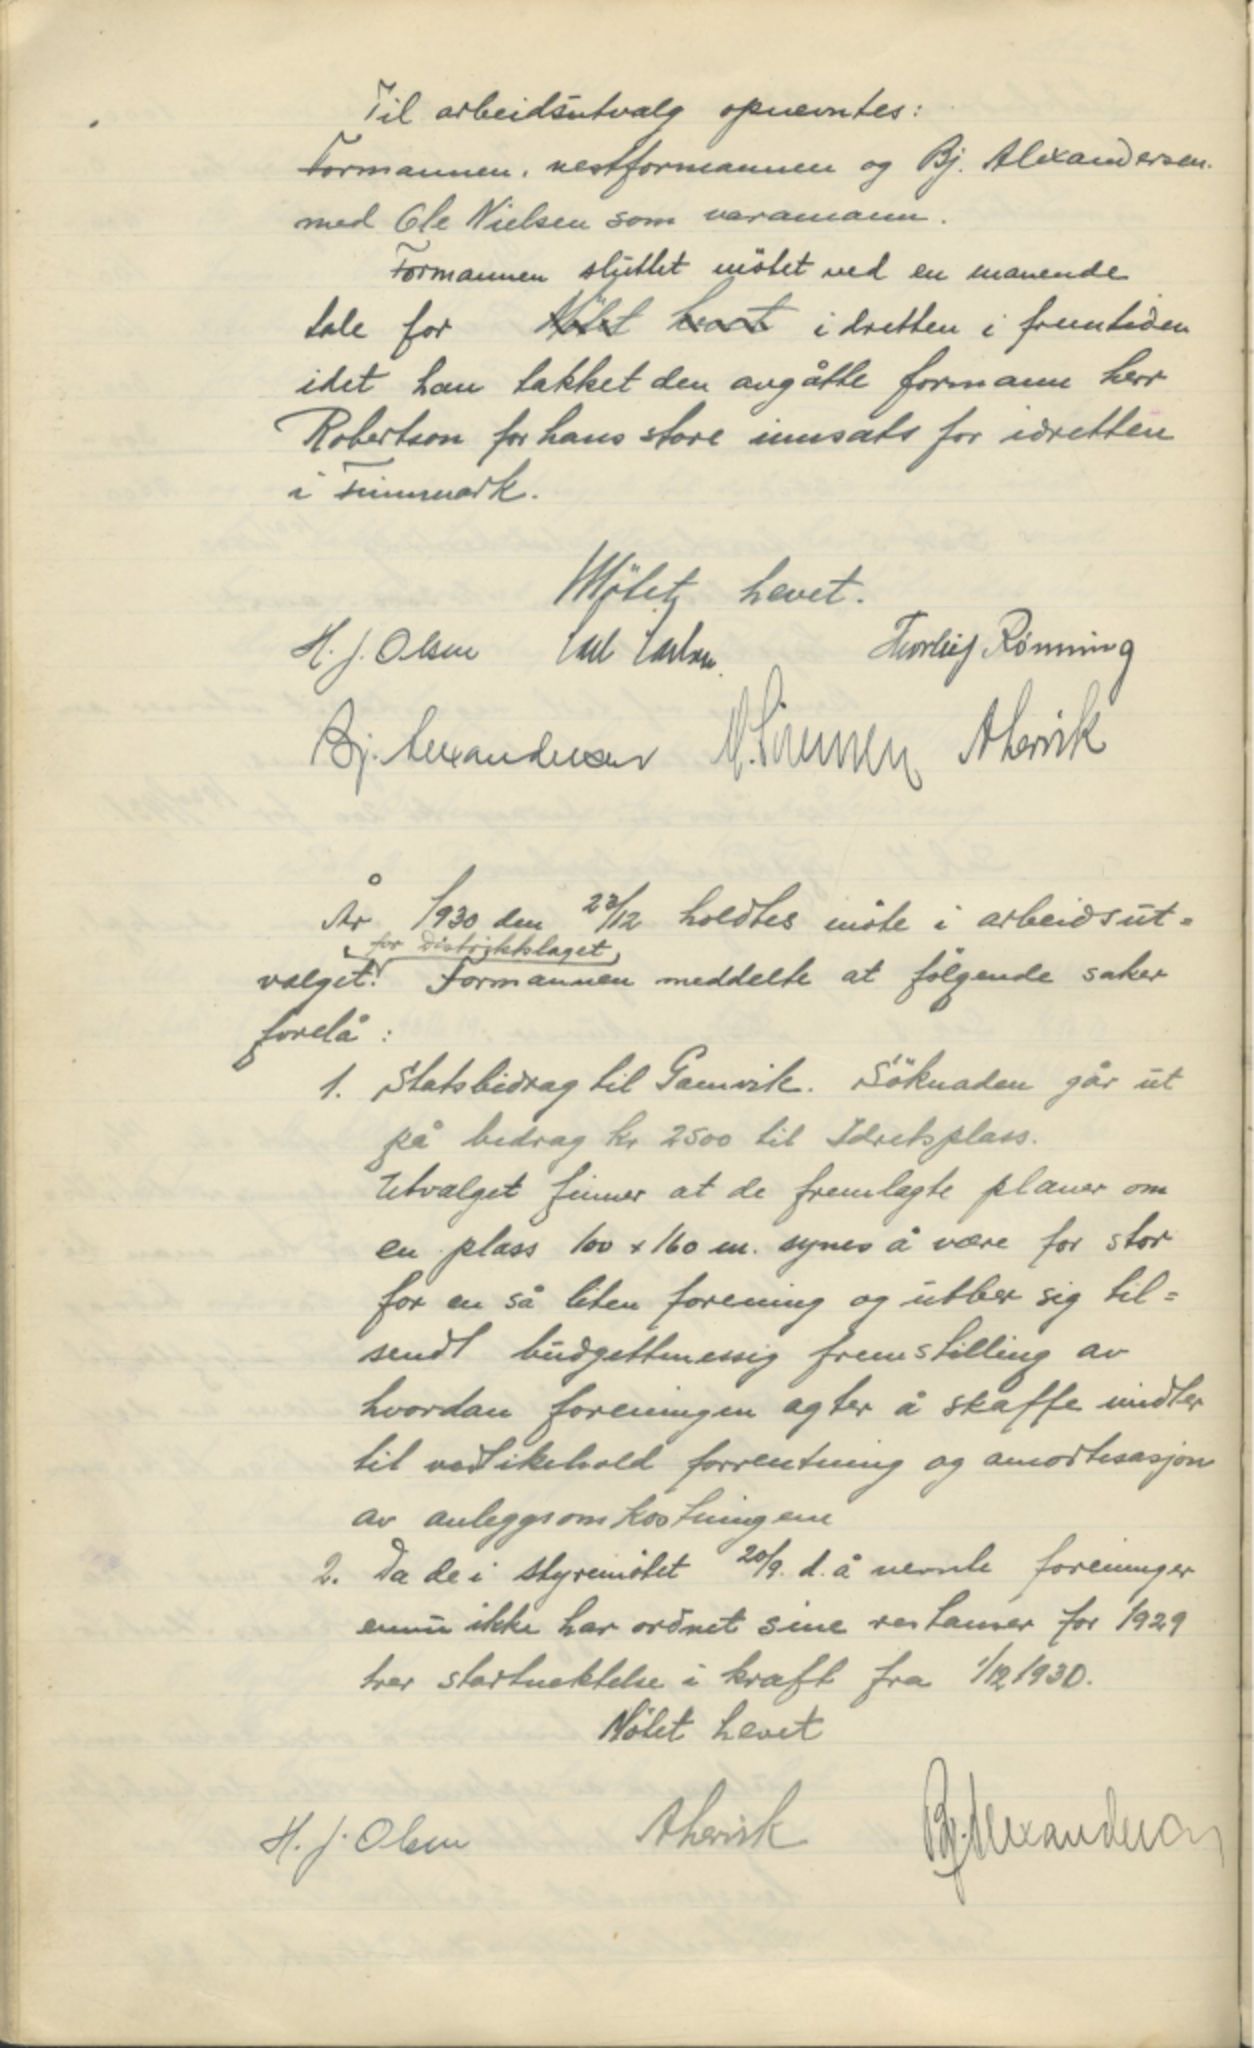 Til arbeidsutvalg opnevntes:
Formannen, nestformannen og Bj. Alexandersen.
med Ole Nielsen som varamann.
Formannen sluttet møtet ved en manende
tale for idretten i fremtiden
idet han takket den avgåtte formann herr
Robertson for hans store innsats for idretten
i Finnmark.
Møtet hevet.
H. J. Olsen Thorleif Rønning
Bj. Alexandersen
År 1930 den 23/12 holdtes møte i arbeidsut=
for Distriktslaget
valget. Formannen meddelte at følgende saker
forelå:
1. Statsbidrag til Gamvik. Søknaden går ut
på bidrag kr 2500 til Idretsplass.
Utvalget finner at de fremlagte planer om
en plass 100 x 160 m. synes å være for stor
for en så liten forening og utber sig til=
sendt budgettmessig fremstilling av
hvordan foreningen agter å skaffe midler
til vedlikehold forrentning og amortisasjon
av anleggsomkostningene
2. Da de i styremøtet 20/9. d. å nevnte foreninger
ennu ikke har ordnet sine restanser for 1929
trer startnektelse i kraft fra 1/12 1930.
Møtet hevet
H. J. Olsen Bj. Alexandersen